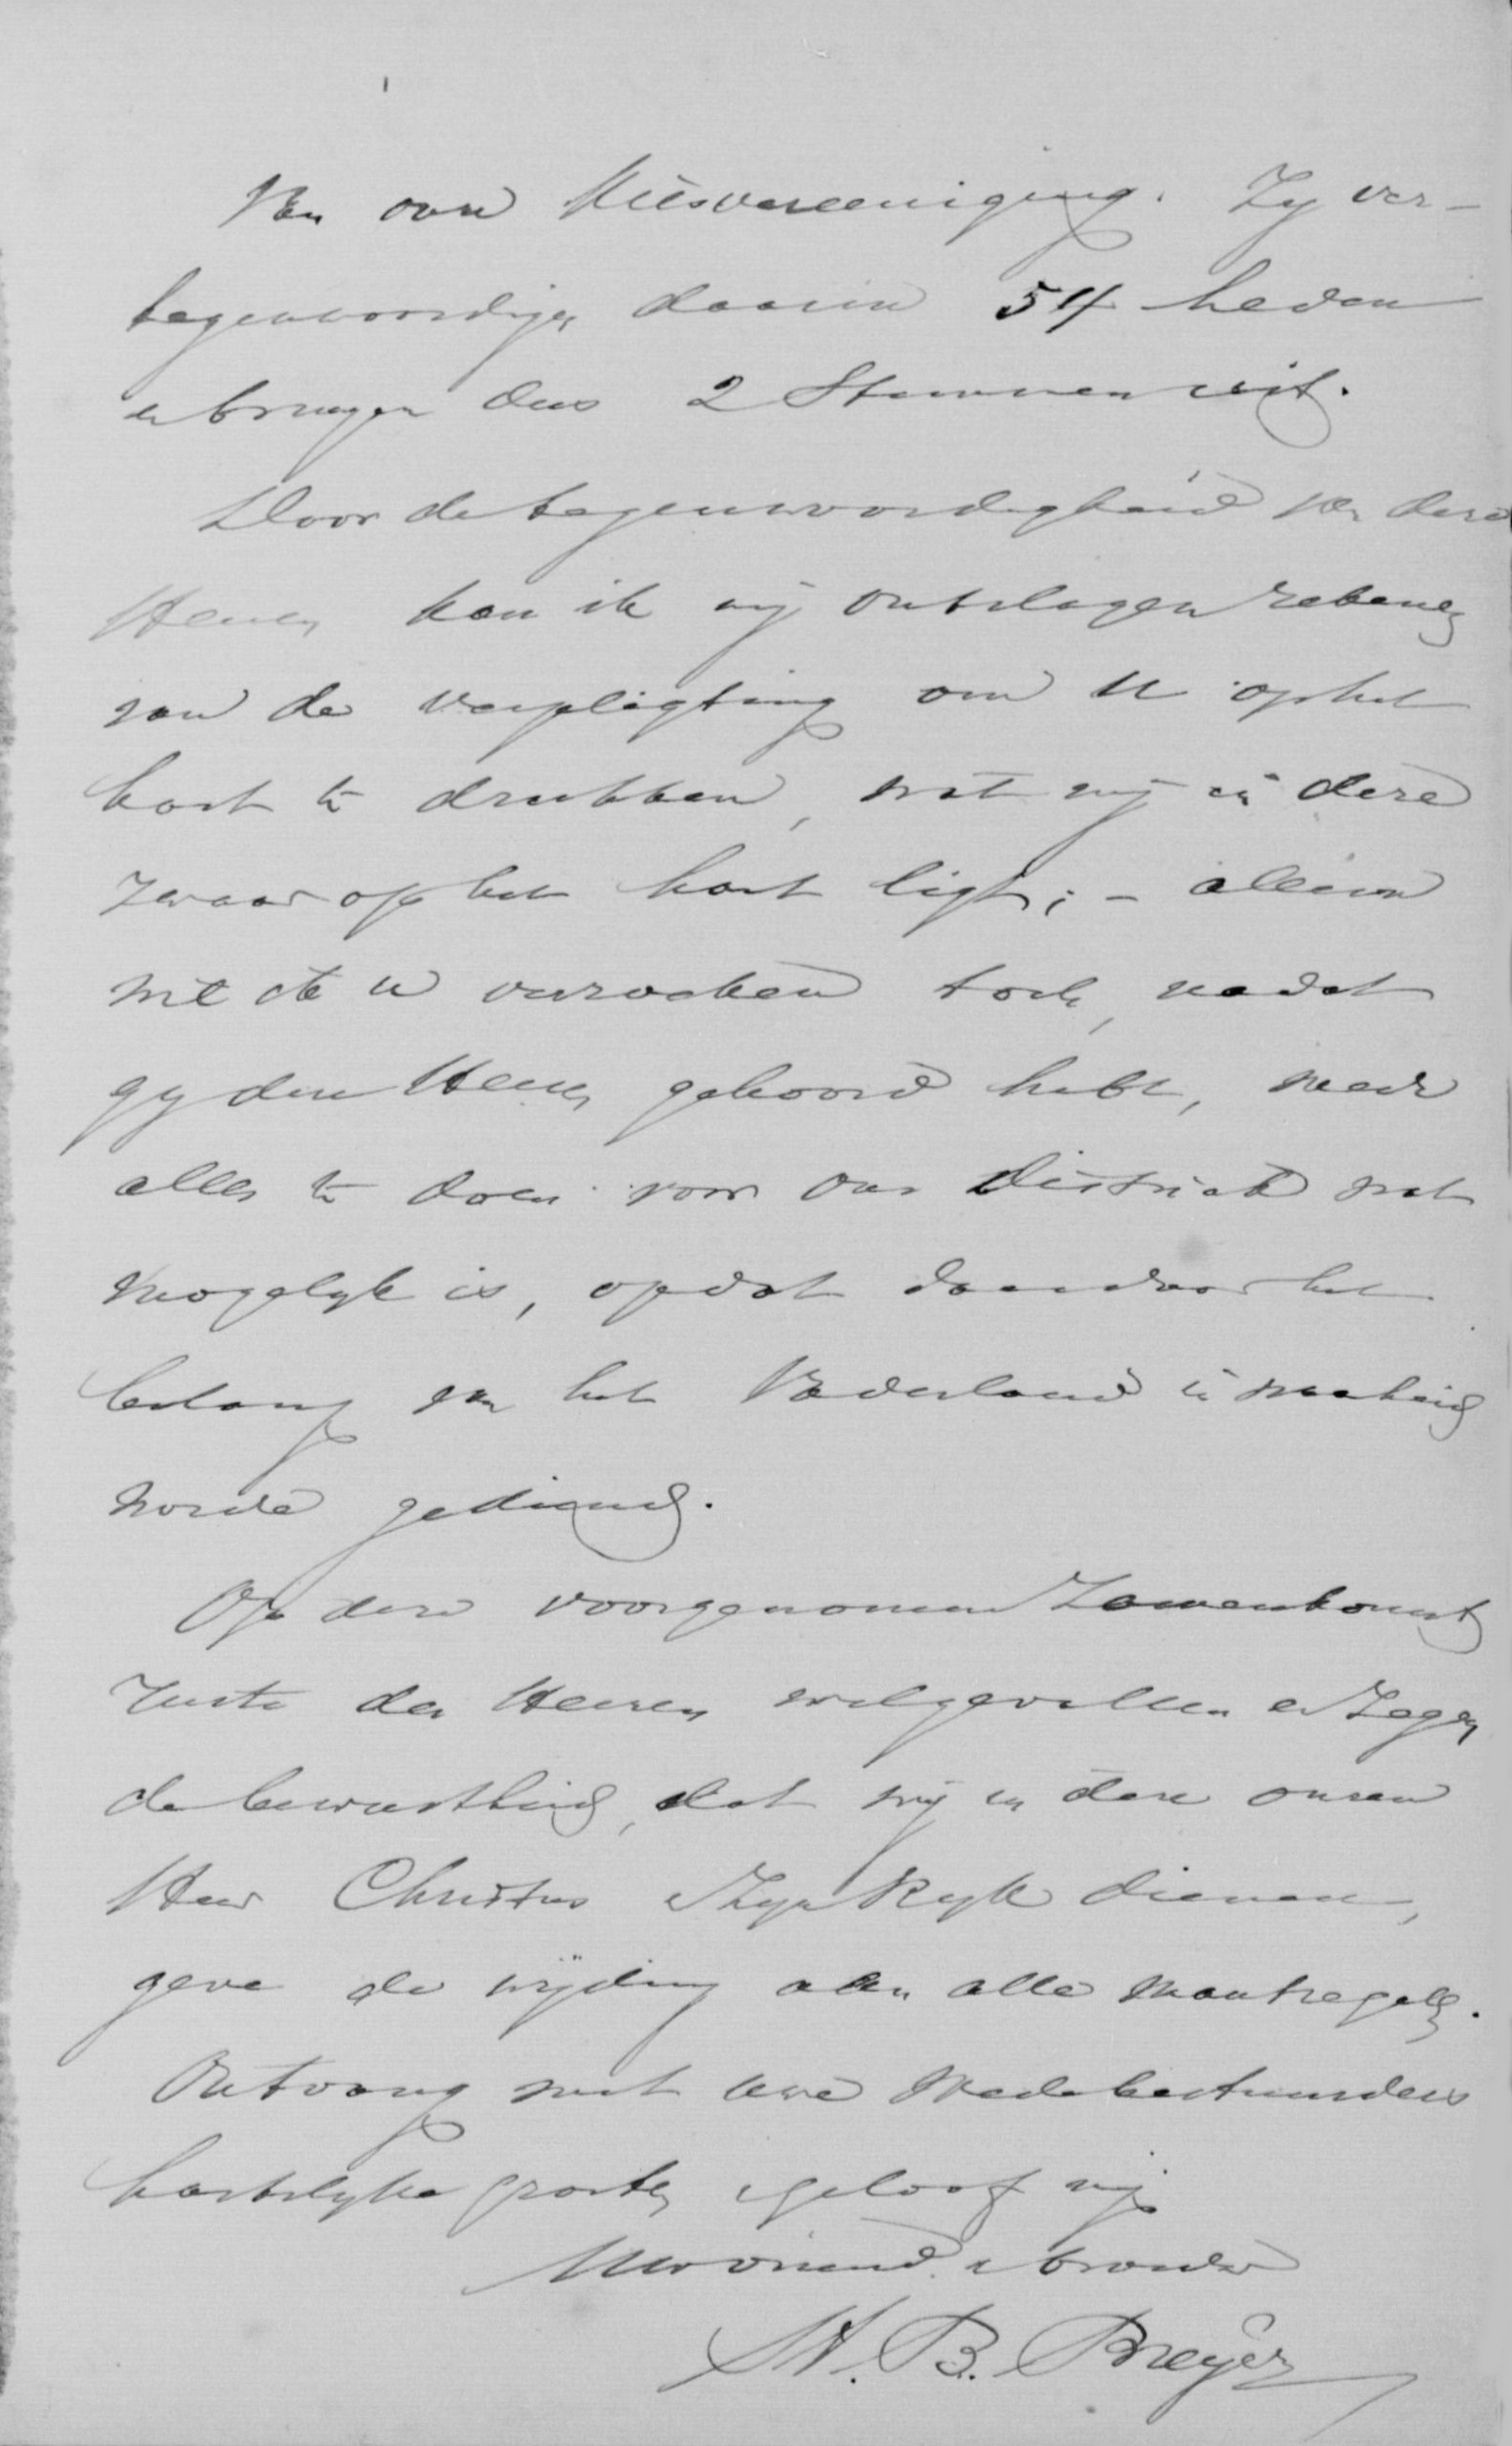 Van onze Kiesvereeniging. Zy ver-
tegenwoordigen daarin 54 leden
en brengen dus 2 Stemmen uit.
Door de tegenwoordigheid van deze
Heeren kan ik mij ontslagen rekenen
van de verpligting om U op het
hart te drukken, wat mij in deze
zwaar op het hart ligt; - alleen
wil ik U verzoeken toch, nadat
gy deze Heeren gehoord hebt, weder
alles te doen voor ons district wat
mogelyk is, opdat daardoor het
belang van het Vaderland in waarheid
worde gediend.
Op deze voorgenomen Zamenkomst
ruste des Heeren welgevallen en Zegen
de bewustheid, dat wij in deze onzen
Heer Christus en Zyn Ryk dienen,
geve de wÿding aan alle maatregelen.
Ontvang met uwe Medebestuurders
hartelyke groeten en geloof mij
Uw vriend en broeder
H. B. Breÿer